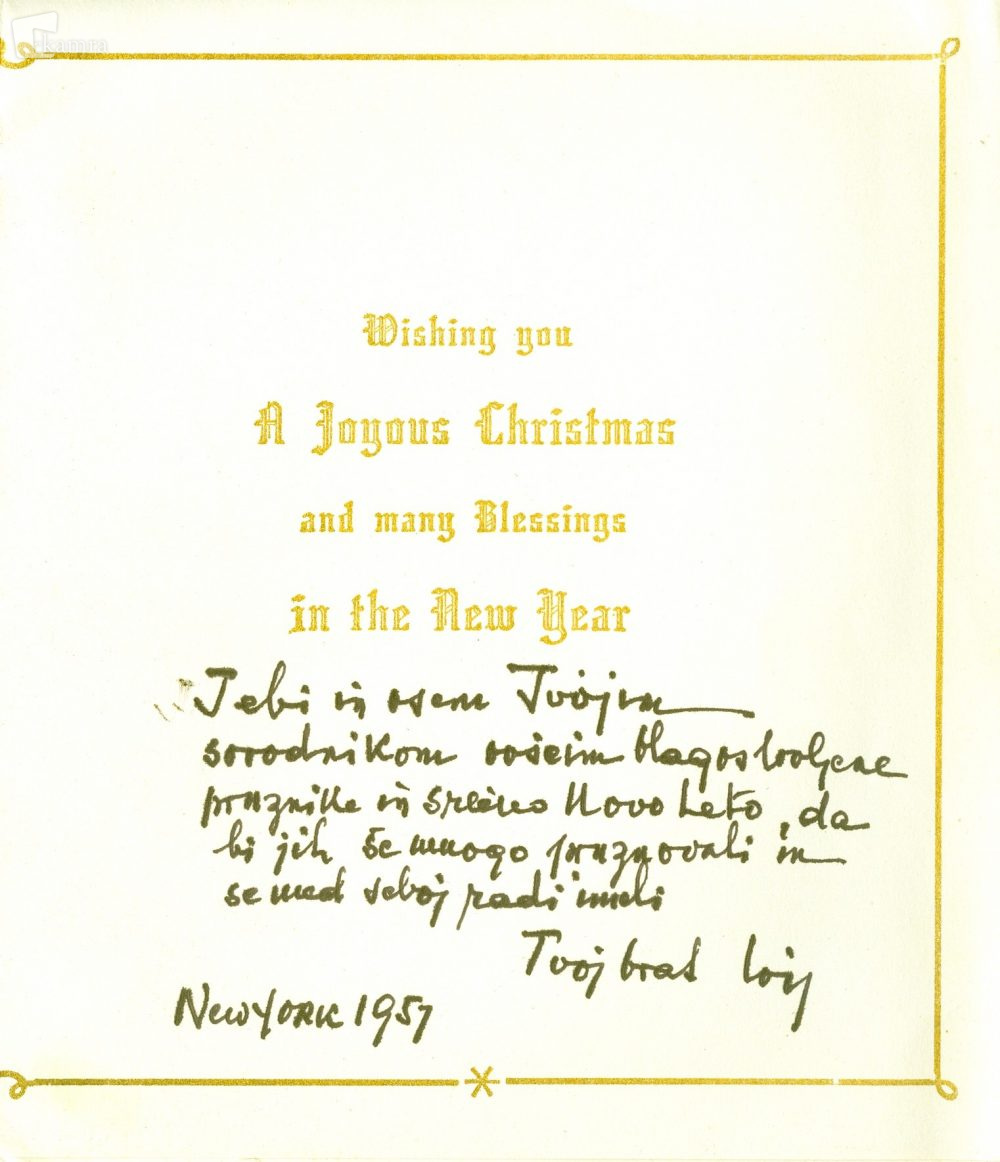 kamra
Wishing you
A Joyous Christmas
and many Blessings
in the New Year
Tebi in vsem Tvojim
sorodnikom voščim blagoslovljene
praznike in srečno Novo Leto, da
bi jih še mnogo praznovali in
se med seboj radi imeli
Tvoj brat Lojz
New York 1957